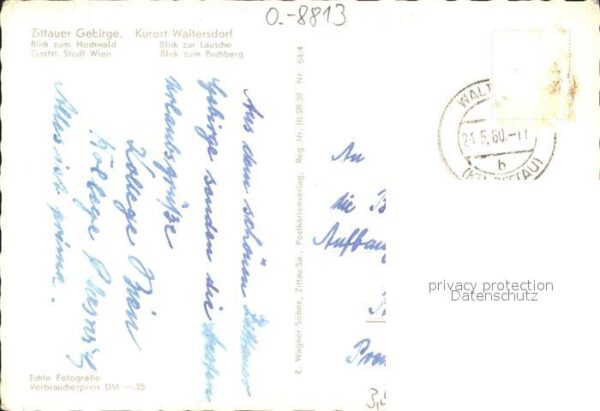 O.-8813
Zittauer Gebirge. Kurort Waltersdorf
Blick zum Hochwald Blick zur Lausche
Gastst. Stadt Wien Blick zum Buchberg
Aus dem schönen Zittauer
Gebirge senden die besten
Urlaubsgrüße
Kollege
Kollege
Alles ist prima.
E. Wagner Söhne, Zittau/Sa., Postkartenverlag, Reg.-Nr. III 28 38 Nr. 54.4
WALT
24.5.60.-11
b
(KR ZITTAU)
An
die B
Aufbau
privacy protection
Datenschutz
Echte Fotografie
Verbraucherpreis DM -.25